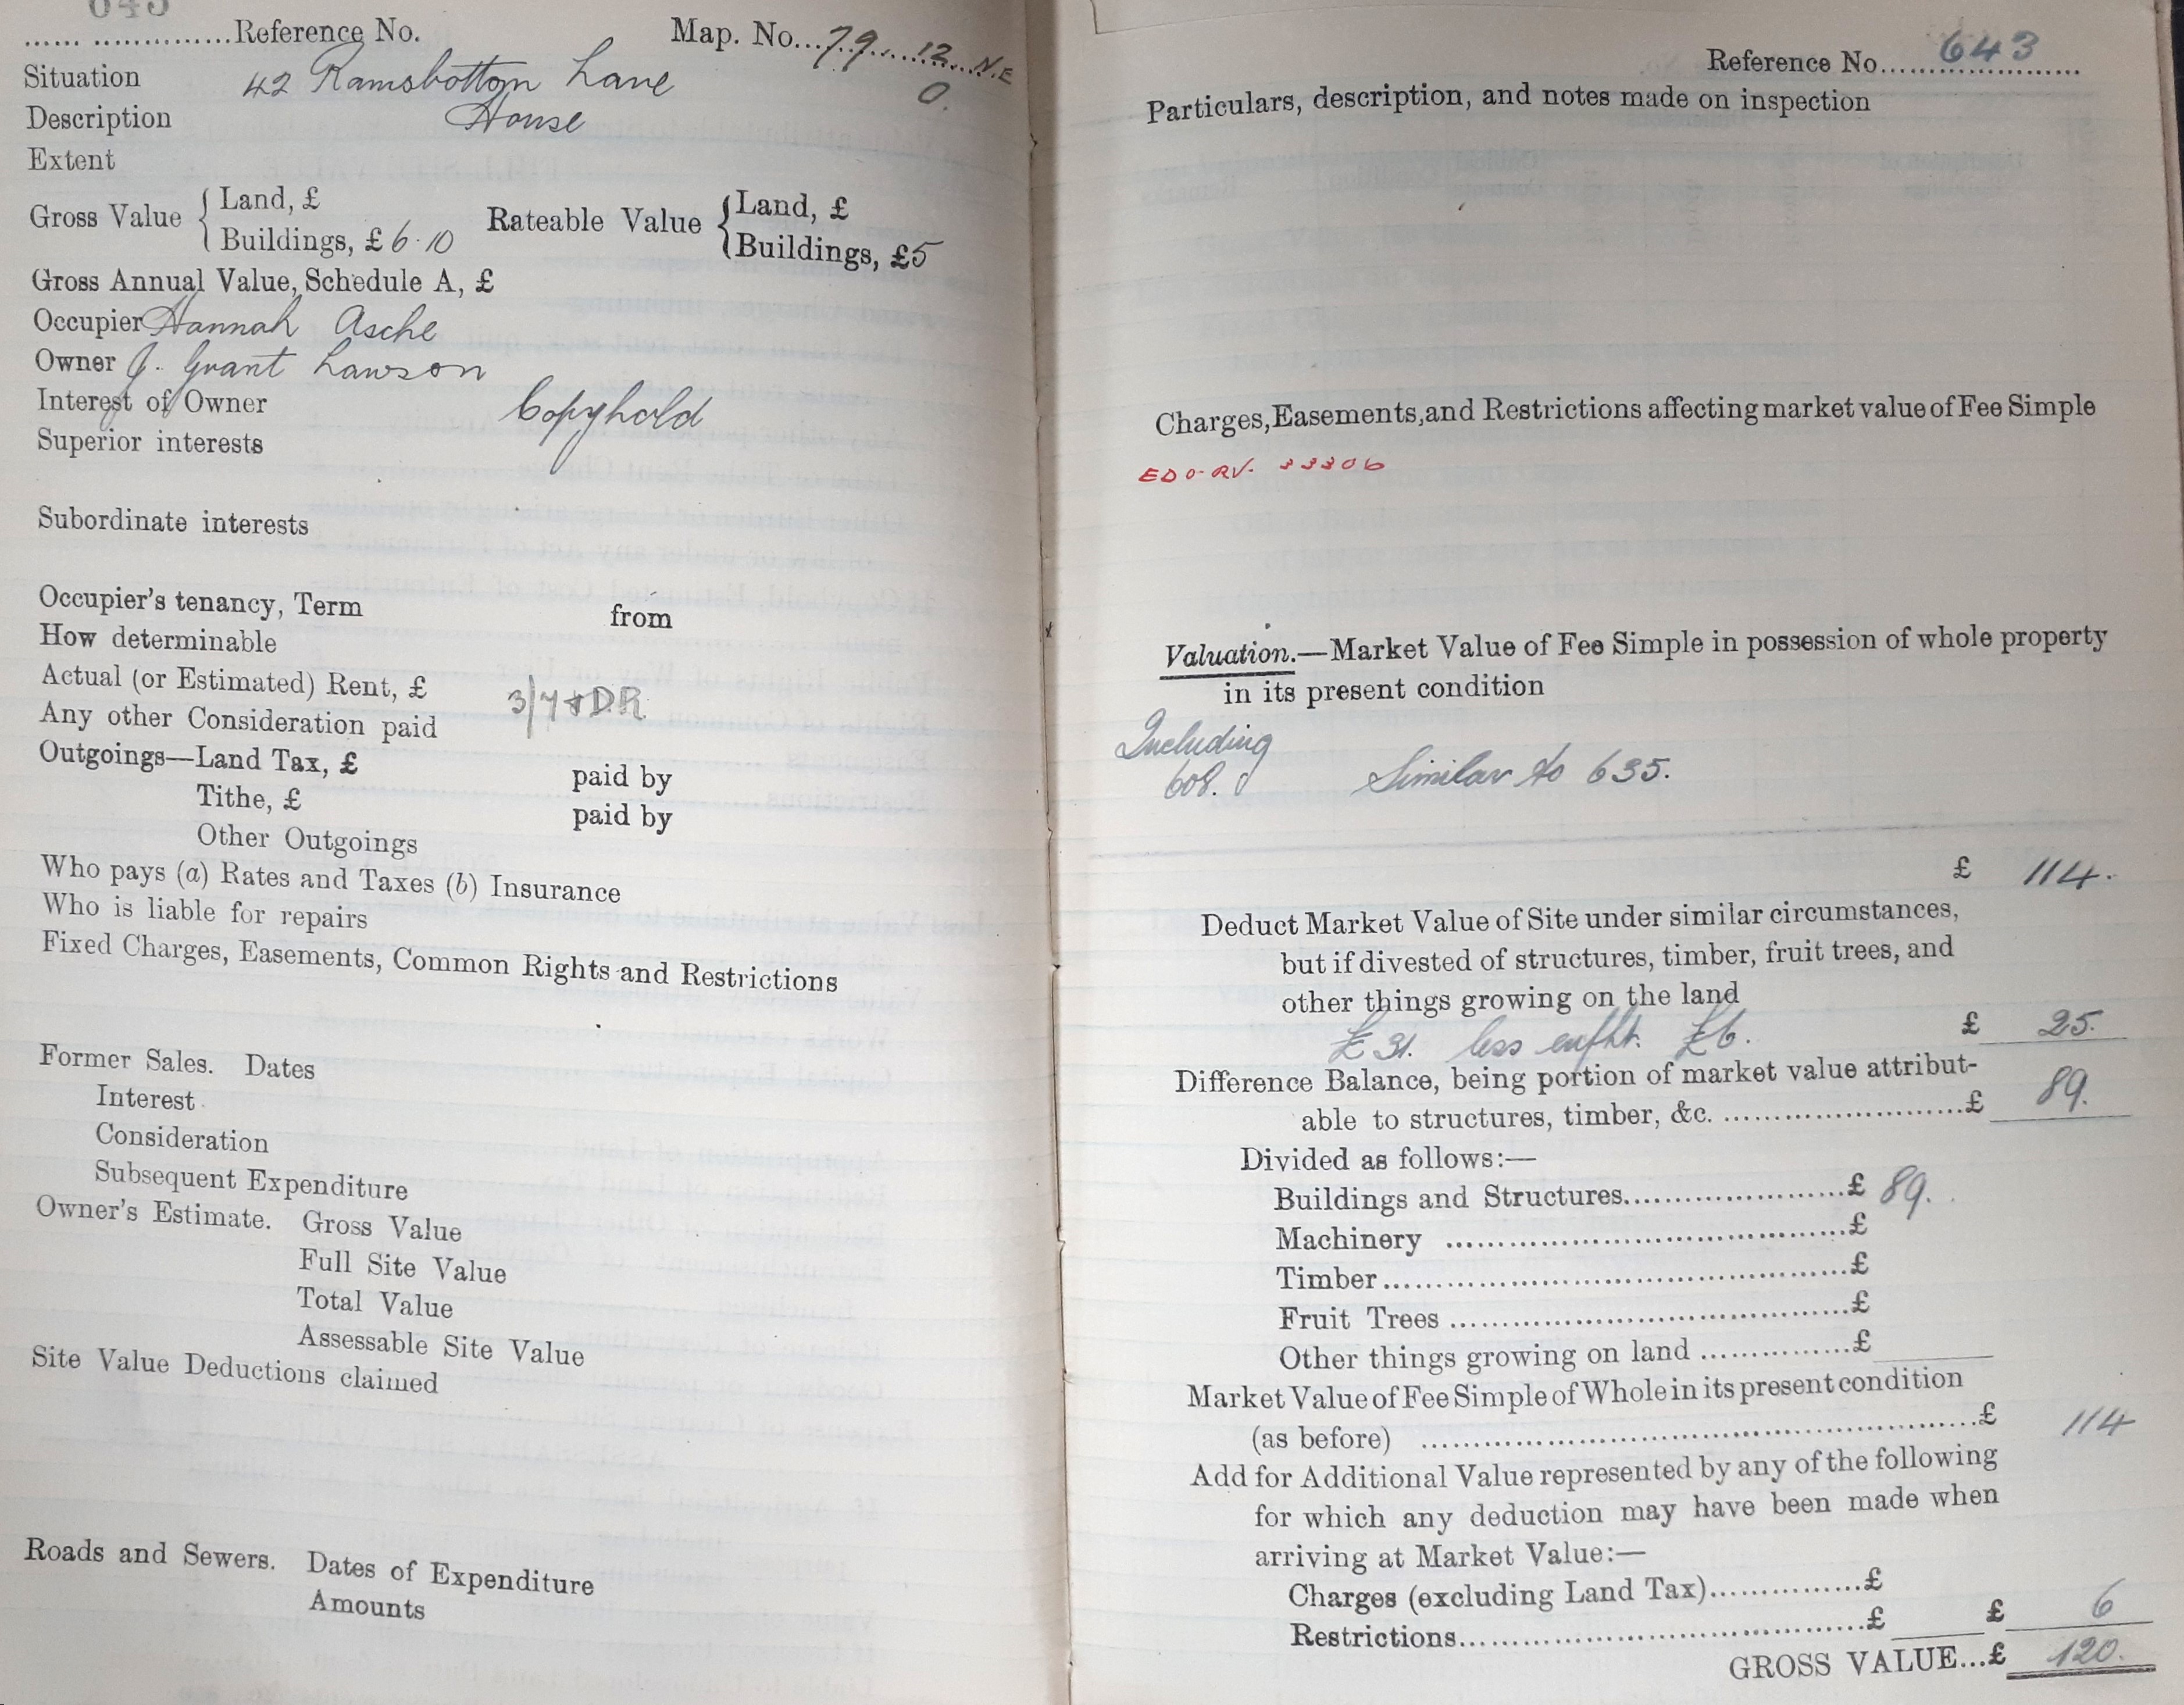 643
...... ..............Reference No. Map. No...79...12...N.E
Situation 42 Ramsbottom Lane 0.
Description House
Extent
Gross Value { Land, £
Buildings, £ 6.10 Rateable Value { Land, £
Buildings, £5
Gross Annual Value, Schedule A, £
Occupier Hannah Asche
Owner J. Grant Lawson
Interest of Owner Copyhold
Superior interests
Subordinate interests
Occupier's tenancy, Term from
How determinable
Actual (or Estimated) Rent, £ 3/7 & D.R.
Any other Consideration paid
Outgoings—Land Tax, £ paid by
Tithe, £ paid by
Other Outgoings
Who pays (a) Rates and Taxes (b) Insurance
Who is liable for repairs
Fixed Charges, Easements, Common Rights and Restrictions
Former Sales. Dates
Interest
Consideration
Subsequent Expenditure
Owner's Estimate. Gross Value
Full Site Value
Total Value
Assessable Site Value
Site Value Deductions claimed
Roads and Sewers. Dates of Expenditure
Amounts
Reference No. 643
Particulars, description, and notes made on inspection
Charges, Easements, and Restrictions affecting market value of Fee Simple
EDO-RV. 33306
Valuation.—Market Value of Fee Simple in possession of whole property
in its present condition
Including
608. Similar to 635.
£ 114.
Deduct Market Value of Site under similar circumstances,
but if divested of structures, timber, fruit trees, and
other things growing on the land
£31. less enfht. £6. £ 25.
Difference Balance, being portion of market value attribut-
able to structures, timber, &c. ........................£ 89.
Divided as follows:—
Buildings and Structures......................£ 89.
Machinery ........................................£
Timber..............................................£
Fruit Trees ........................................£
Other things growing on land ...............£
Market Value of Fee Simple of Whole in its present condition
(as before) ........................................................£ 114
Add for Additional Value represented by any of the following
for which any deduction may have been made when
arriving at Market Value:—
Charges (excluding Land Tax)...............£
Restrictions..........................................£ £ 6
GROSS VALUE...£ 120.